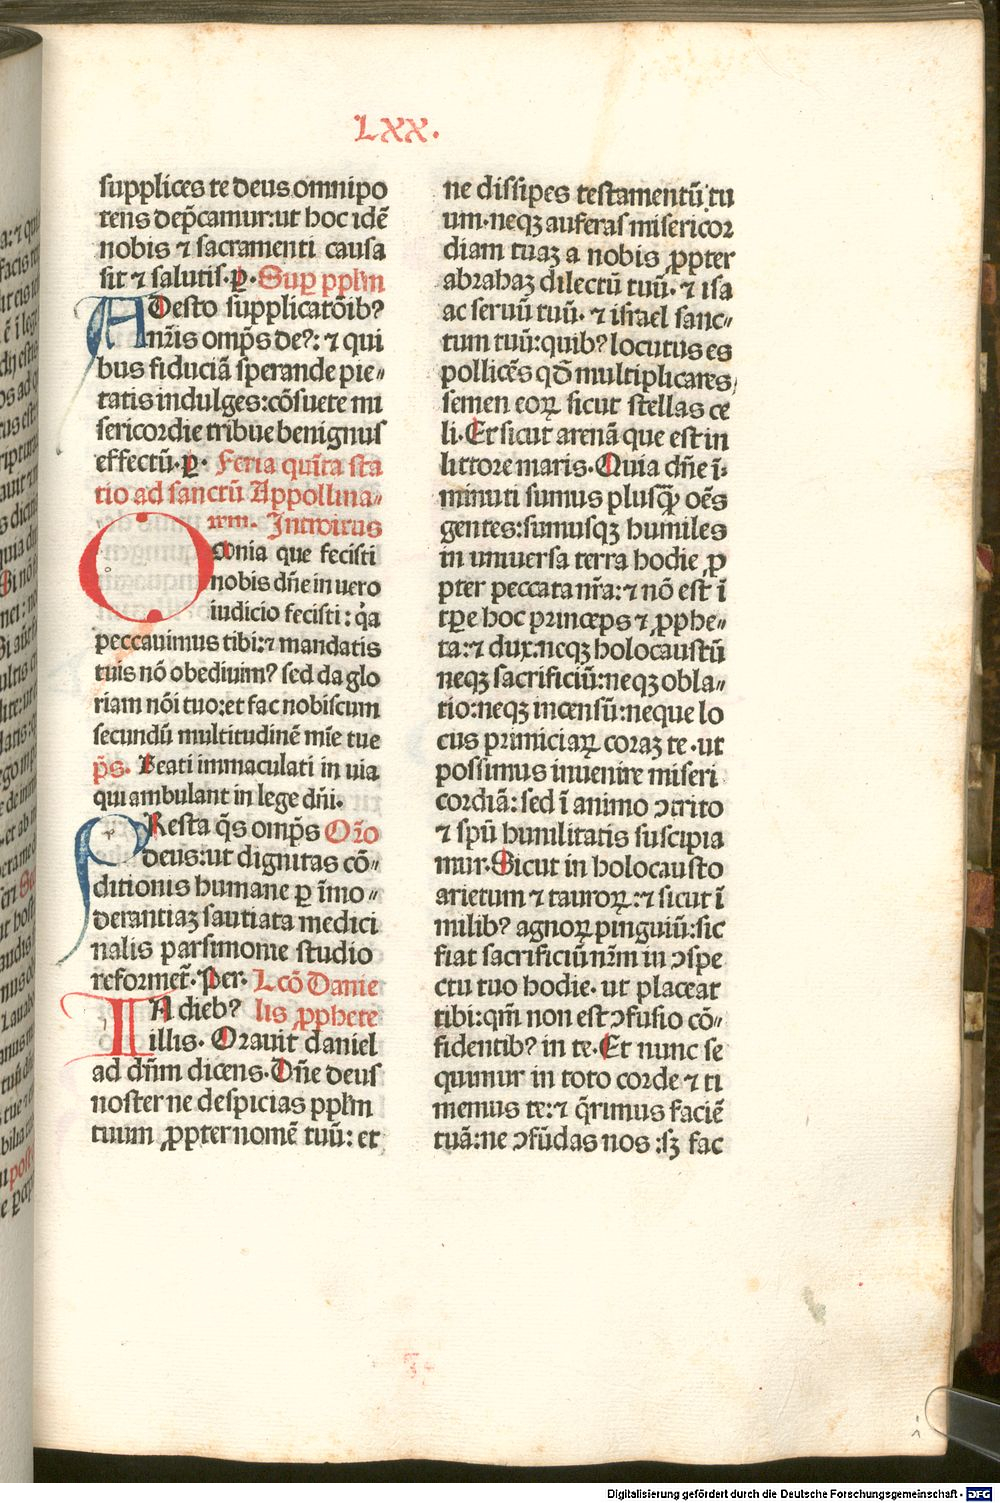 LXX.
supplices te deus omnipo
tens dep̃camur:ut hoc idẽ
nobis ⁊ sacramenti causa
sit ⁊ salutis.ꝑ. Suꝑ ppl'm
ADesto supplicatõib?
nr̃is omp̃s de?: ⁊ qui
bus fiduciã sperande pie„
tatis indulges:cõsuete mi
sericordie tribue benignus
effectũ.ꝑ. Feria quĩta sta
tio ad sanctũ Appollina„
rem. Introitus
OMnia que fecisti
nobis dñe in uero
iudicio fecisti: q̃a
peccauimus tibi:⁊ mandatis
tuis nõ obediuim? sed da glo
riam nõi tuo:et fac nobiscum
secundũ multitudinẽ mĩe tue
p̃s. Beati immaculati in uia
qui ambulant in lege dñi.
PResta q̃s omp̃s Or̃o
deus:ut dignitas cõ„
ditionis humane ꝑ ĩmo„
derantiaꝫ sautiata medici
nalis parsimonie studio
reformet̃. Per. Lcõ Danie
IN dieb? lis ꝓphete
illis. Orauit daniel
ad dñm dicens. Dñe deus
noster ne despicias ppl'm
tuum ꝓpter nomẽ tuũ: et
ne dissipes testamentũ tu
um.neqꝫ auferas misericor
diam tuaꝫ a nobis ꝓpter
abrahaꝫ dilectũ tuũ. ⁊ isa
ac seruũ tuũ. ⁊ israel sanc„
tum tuũ:quib? locutus es
pollicẽs qđ multiplicares
semen eoꝝ sicut stellas ce
li. Et sicut arenã que est in
littore maris. Quia dñe ĩ:
minuti sumus plusq̃ꝫ oẽs
gentes:sumusqꝫ humiles
in uniuersa terra hodie ꝓ
pter peccata nr̃a: ⁊ nõ est ĩ
tꝑe hoc princeps ⁊ ꝓphe„
ta:⁊ dux:neqꝫ holocaustũ
neqꝫ sacrificiũ:neqꝫ obla„
tio:neqꝫ incensũ:neque lo
cus primiciaꝝ coraꝫ te.ut
possimus inuenire miseri
cordiã: sed ĩ animo ↄtrito
⁊ spũ humilitatis suscipia
mur. Sicut in holocausto
arietum ⁊ tauroꝝ:⁊ sicut ĩ
milib? agnoꝝ pinguiũ:sic
fiat sacrificiũ nr̃m in ↄspe
ctu tuo hodie. ut placeat
tibi:qm̃ non est ↄfusio cõ„
fidentib? in te. Et nunc se
quimur in toto corde ⁊ ti
memus te:⁊ q̃rimus faciẽ
tuã:ne ↄfũdas nos :sꝫ fac
Digitalisierung gefördert durch die Deutsche Forschungsgemeinschaft - DFG